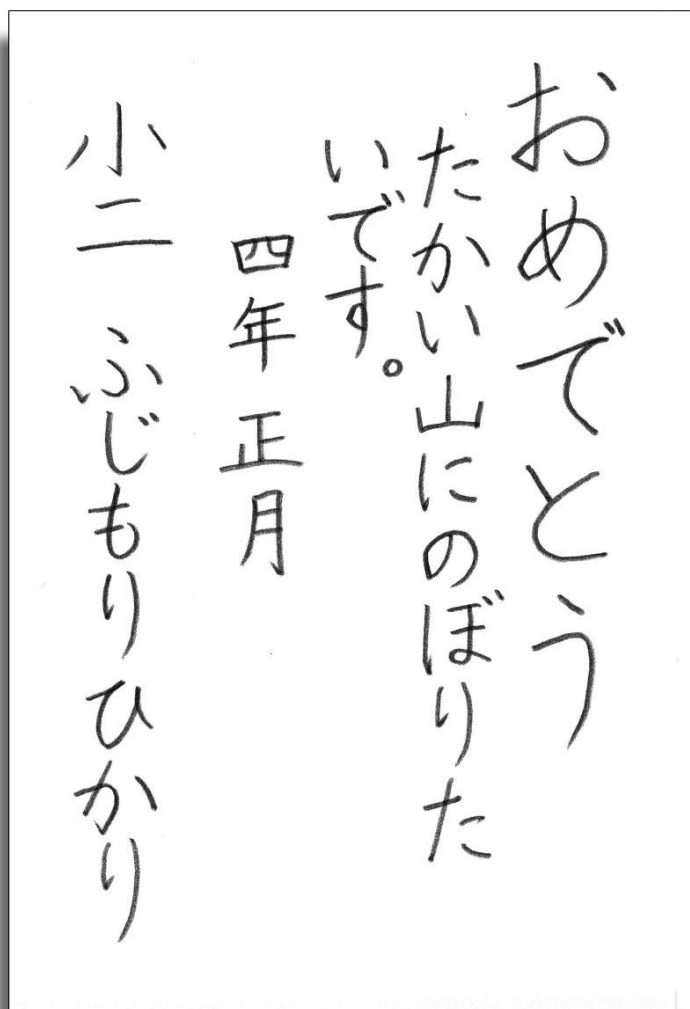 おめでとう
たかい山にのぼりた
いです。
四年 正月
小二 ふじもりひかり